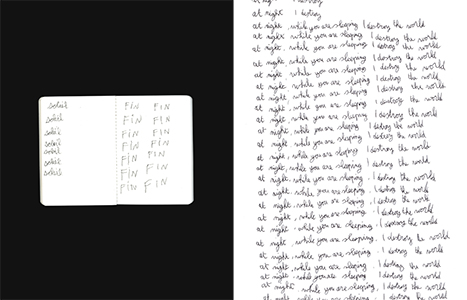 soleil
soleil
soleil
soleil
soleil
soleil
soleil
FIN FIN
FIN FIN
FIN FIN
FIN FIN
FIN FIN
FIN FIN
FIN FIN
at night I destroy
at night I destroy
at night, while you are sleeping I destroy the world
at night, while you are sleeping I destroy the world
at night, while you are sleeping I destroy the world
at night, while you are sleeping I destroy the world
at night, while you are sleeping I destroy the world
at night, while you are sleeping I destroy the world
at night, while you are sleeping I destroy the world
at night, while you are sleeping I destroy the world
at night, while you are sleeping I destroy the world
at night, while you are sleeping I destroy the world
at night, while you are sleeping I destroy the world
at night, while you are sleeping I destroy the world
at night, while you are sleeping I destroy the world
at night, while you are sleeping I destroy the world
at night, while you are sleeping I destroy the world
at night, while you are sleeping I destroy the world
at night, while you are sleeping I destroy the world
at night, while you are sleeping I destroy the world
at night, while you are sleeping I destroy the world
at night, while you are sleeping I destroy the world
at night, while you are sleeping I destroy the world
at night, while you are sleeping I destroy the world
at night, while you are sleeping I destroy the world